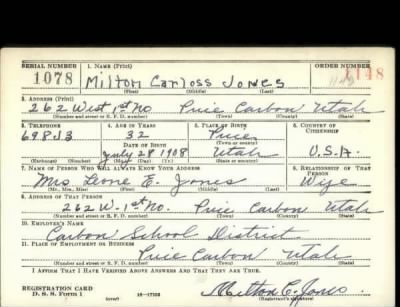 SERIAL NUMBER 1. NAME (Print) ORDER NUMBER
1078 Milton Carloss Jones 1148
(First) (Middle) (Last)
2. ADDRESS (Print)
262 West 1st No Price Carbon Utah
(Number and street or R. F. D. number) (Town) (County) (State)
3. TELEPHONE 4. AGE IN YEARS 5. PLACE OF BIRTH 6. COUNTRY OF CITIZENSHIP
698J3 32 Price
(Town or county)
DATE OF BIRTH
July 28 1908 Utah U.S.A.
(Exchange) (Number) (Mo.) (Day) (Yr.) (State or country)
7. NAME OF PERSON WHO WILL ALWAYS KNOW YOUR ADDRESS 8. RELATIONSHIP OF THAT PERSON
Mrs Leone E. Jones Wife
(Mr., Mrs., Miss) (First) (Middle) (Last)
9. ADDRESS OF THAT PERSON
262 W. 1st No. Price Carbon Utah
(Number and street or R. F. D. number) (Town) (County) (State)
10. EMPLOYER'S NAME
Carbon School District
11. PLACE OF EMPLOYMENT OR BUSINESS
Price Carbon Utah
(Number and street or R. F. D. number) (Town) (County) (State)
I AFFIRM THAT I HAVE VERIFIED ABOVE ANSWERS AND THAT THEY ARE TRUE.
REGISTRATION CARD
D. S. S. Form 1 (over) 16-17105 Milton C. Jones
(Registrant's signature)